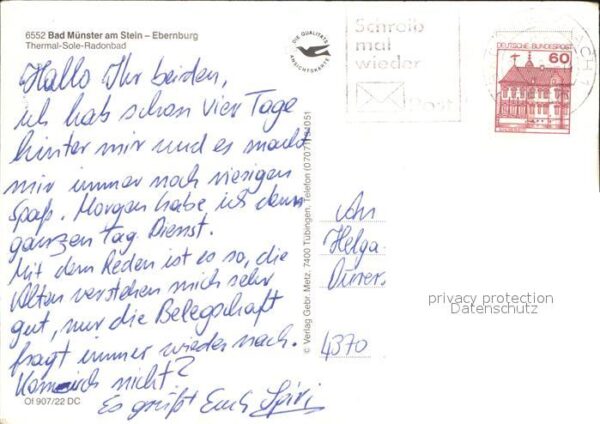 6552 Bad Münster am Stein – Ebernburg
Thermal-Sole-Radonbad
Hallo Ihr beiden,
ich hab schon vier Tage
hinter mir und es macht
mir immer noch riesigen
Spaß. Morgen habe ich den
ganzen Tag Dienst.
Mit dem Reden ist es so, die
Alten verstehen mich sehr
gut, nur die Belegschaft
fragt immer wieder nach.
Komisch nicht?
Es grüßt Euch
Of 907/22 DC
DIE QUALITÄTS
ANSICHTSKARTE
© Verlag Gebr. Metz, 7400 Tübingen, Telefon (07071)
Schreib
mal
wieder
Post
DEUTSCHE BUNDESPOST
60
An
Helga
4370
privacy protection
Datenschutz